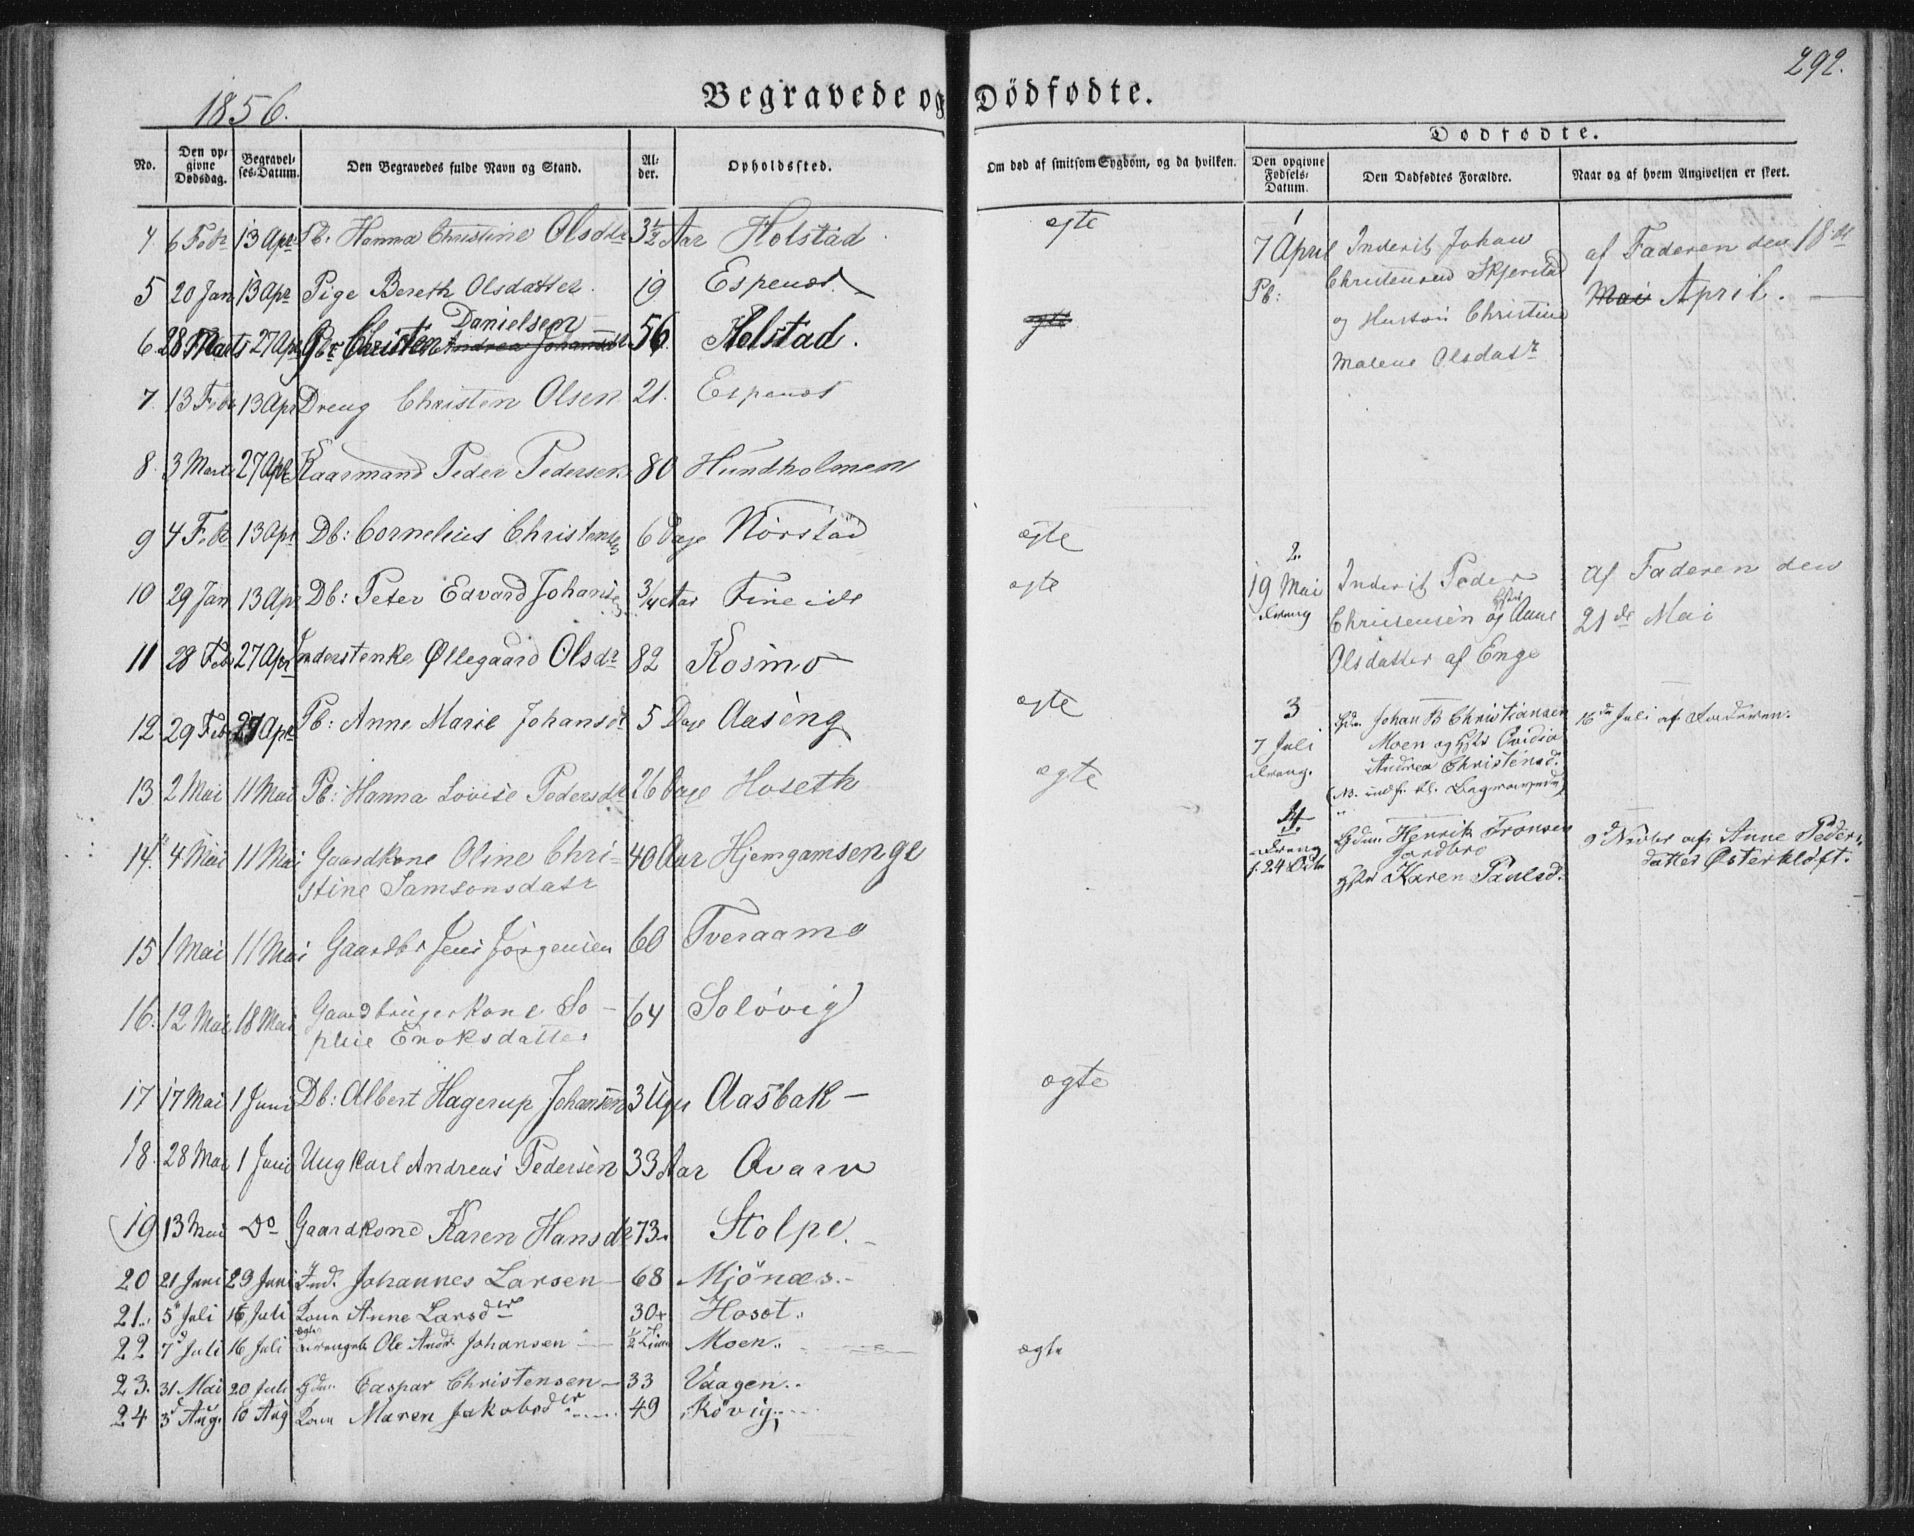 292.
1856.
Begravede og Dödfödte.
Dödfödte.
No.
Den opgivne Dødsdag.
Begravelses-Datum.
Den Begravedes fulde Navn og Stand.
Alder.
Opholdssted.
Om død af smitsom Sygdom, og da hvilken.
Den opgivne Fødsels-Datum.
Den Dødfødtes Forældre.
Naar og af hvem Angivelsen er skeet.
4 6 Febr 13 Apr Pb: Hanna Christine Olsdr 3½ Aar Holstad ægte
5 20 Jan 13 Apr Pige Bereth Olsdatter 19 Espenæs
Danielsen
6 28 Marts 27 Apr Gbr Christen Andrea Johansdr 56 Holstad. ægte
7. 13 Feb 13 Apr Dreng Christen Olsen 21. Espenæs
8. 3 Marts 27 Apr Kaarmand Peder Pedersen 80 Hundholmen
9 4 Feb 13 Apr Db: Cornelius Christensen 6 Dage Nörstad ægte
10 29 Jan 13 Apr Db: Peter Edvard Johansen 3/4 Aar Fineide ægte
11 28 Feb 27 Apr Inderstenke Øllegaard Olsdr 82 Kosmo
12 29 Feb 27 Apr Pb: Anne Marie Johansdr 5 Dage Aaseng ægte
13 2 Mai 11 Mai Pb: Hanna Lovise Pedersdr 26 Dage Hoseth ægte
14. 4 Mai 11 Mai Gaardkone Oline Chri- 40 Aar Hjemgamsenge
stine Samsonsdatr
15 1 Mai 11 Mai Gaardbr Jens Jörgensen 60 Tveraamo
16. 12 Mai 18 Mai Gaardbrugerkone So- 64 Solövig
phie Enoksdatter
17 17 Mai 1 Juni Db: Albert Hagerup Johansen 3 Uger Aasbak ægte
18. 28 Mai 1 Juni Ungkarl Andreas Pedersen 33 Aar Qvarv
19 13 Mai Do Gaardkone Karen Hansdr 73 Stolpe.
20 21 Juni 29 Juni Ind. Johannes Larsen 68 Mjönæs.
21. 5 Juli 16 Juli Kona Anne Larsdr 30 Hoset.
ægte
22 7 Juli 16 Juli Drengeb Ole Andr Johansen ½ Time Moen. ægte
23. 31 Mai 20 Juli Gdm. Caspar Christensen 33 Vaagen.
24 3 Aug. 10 Aug Kona Maren Jakobsdr 49 Røvig
1
7 April
Pb:
Inderst Johan
Christensen Skjerstad
og Hustru Christine
Malene Olsdatr
af Faderen den 18de
Mai April.
2.
19 Mai
Dreng
Inderst Peder
Christensen og Hstr Anne
Olsdatter af Enge
af Faderen den
21de Mai
3
7 Juli
Dreng.
Gdm. Johan B Christiansen
Moen og Hstr Ovidia
Andrea Christensd.
16de Juli af Faderen.
4.
Dreng
f. 24 Octb
Gdm Henrik Fronsen
Jordbro
Hstr Karen Paulsd.
9d Novbr af Anne Peders-
datter Østerkløft.